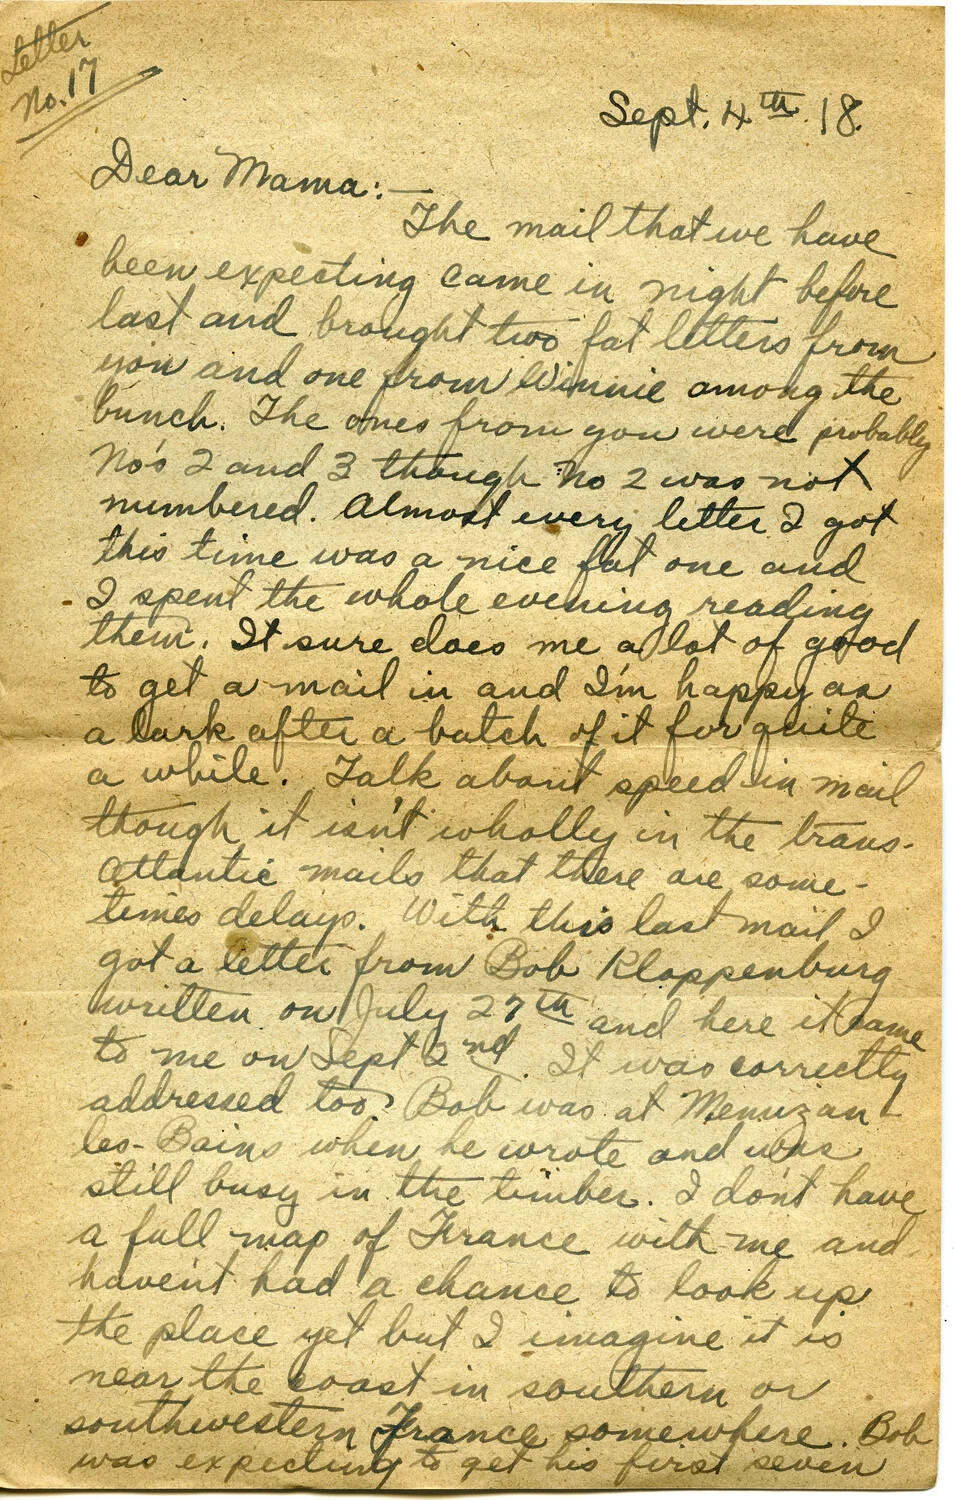 Letter
No. 17
Sept. 4th. 18.
Dear Mama:—
The mail that we have
been expecting came in night before
last and brought two fat letters from
you and one from Winnie among the
bunch. The ones from you were probably
No's 2 and 3 though No 2 was not
numbered. Almost every letter I got
this time was a nice fat one and
I spent the whole evening reading
them. It sure does me a lot of good
to get a mail in and I'm happy as
a lark after a batch of it for quite
a while. Talk about speed in mail
though it isn't wholly in the trans-
Atlantic mails that there are some-
times delays. With this last mail I
got a letter from Bob Kloppenburg
written on July 27th and here it came
to me on Sept 2nd. It was correctly
addressed too. Bob was at Menuzan-
les-Bains when he wrote and was
still busy in the timber. I don't have
a full map of France with me and
haven't had a chance to look up
the place yet but I imagine it is
near the coast in southern or
southwestern France somewhere. Bob
was expecting to get his first seven